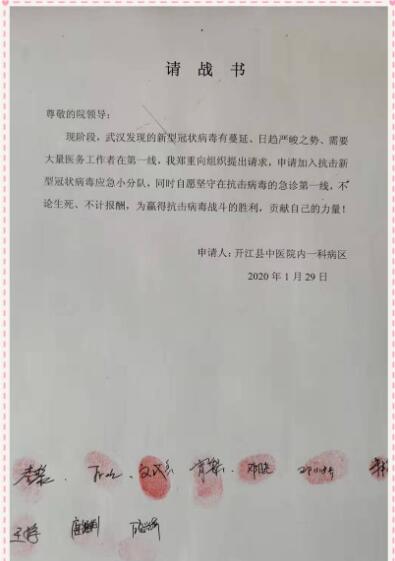 请 战 书
尊敬的院领导：
现阶段，武汉发现的新型冠状病毒有蔓延、日趋严峻之势、需要
大量医务工作者在第一线，我郑重向组织提出请求，申请加入抗击新
型冠状病毒应急小分队，同时自愿坚守在抗击病毒的急诊第一线，不
论生死、不计报酬，为赢得抗击病毒战斗的胜利，贡献自己的力量！
申请人：开江县中医院内一科病区
2020 年 1 月 29 日